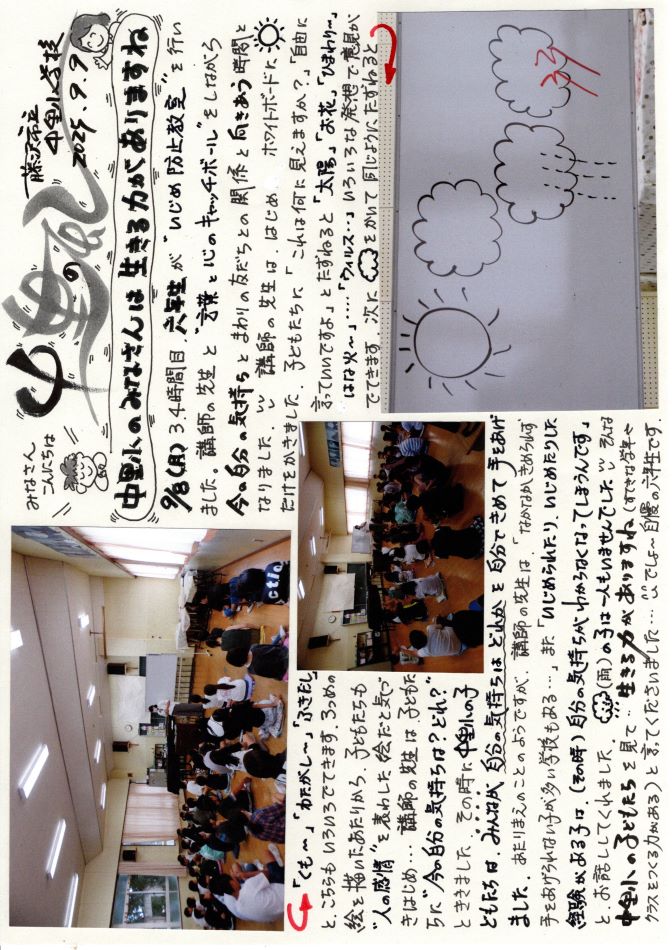 みなさん
こんにちは
中里の風
藤沢市立
中里小学校
2025.9.9
中里小のみなさんは生きる力がありますね
9/8(月) 3.4時間目、六年生が"いじめ防止教室"を行い
ました。講師の先生と"言葉と心のキャッチボール"をしながら
今の自分の気持ちとまわりの友だちとの関係と向きあう時間と
なりました。講師の先生は、はじめ、ホワイトボードに
だけをかきました。子どもたちに「これは何に見えますか?」「自由に
言っていいですよ」とたずねると「太陽」「お花」「ひまわり〜」
「はな火〜」‥‥「ウィルス‥」いろいろな発想で意見が
でてきます。次に をかいて同じようにたずねると
「くも〜」「わたがし〜」「ふきだし」
と、こちらもいろいろでてきます。3つめの
絵を描いたあたりから、子どもたちも
"人の感情"を表わした絵だと気づ
きはじめ… 講師の先生は子どもた
ちに"今の自分の気持ちは?どれ?"
とききました。その時に中里小の子
どもたちは、みんなが、自分の気持ちはどれかと自分できめて手をあげ
ました。あたりまえのことのようですが、講師の先生は、「なかなかきめられず
手をあげられない子が多い学校もある…」また「いじめられたり、いじめたりした
経験がある子は、(その時)自分の気持ちがわからなくなってしまうんです」
と、お話ししてくれました。 (雨)の子は一人もいませんでした そんな
中里小の子どもたちを見て…生きる力がありますね(すてきな学年や
クラスをつくる力がある)と言ってくださいました…でしょ〜自慢の六年生です。